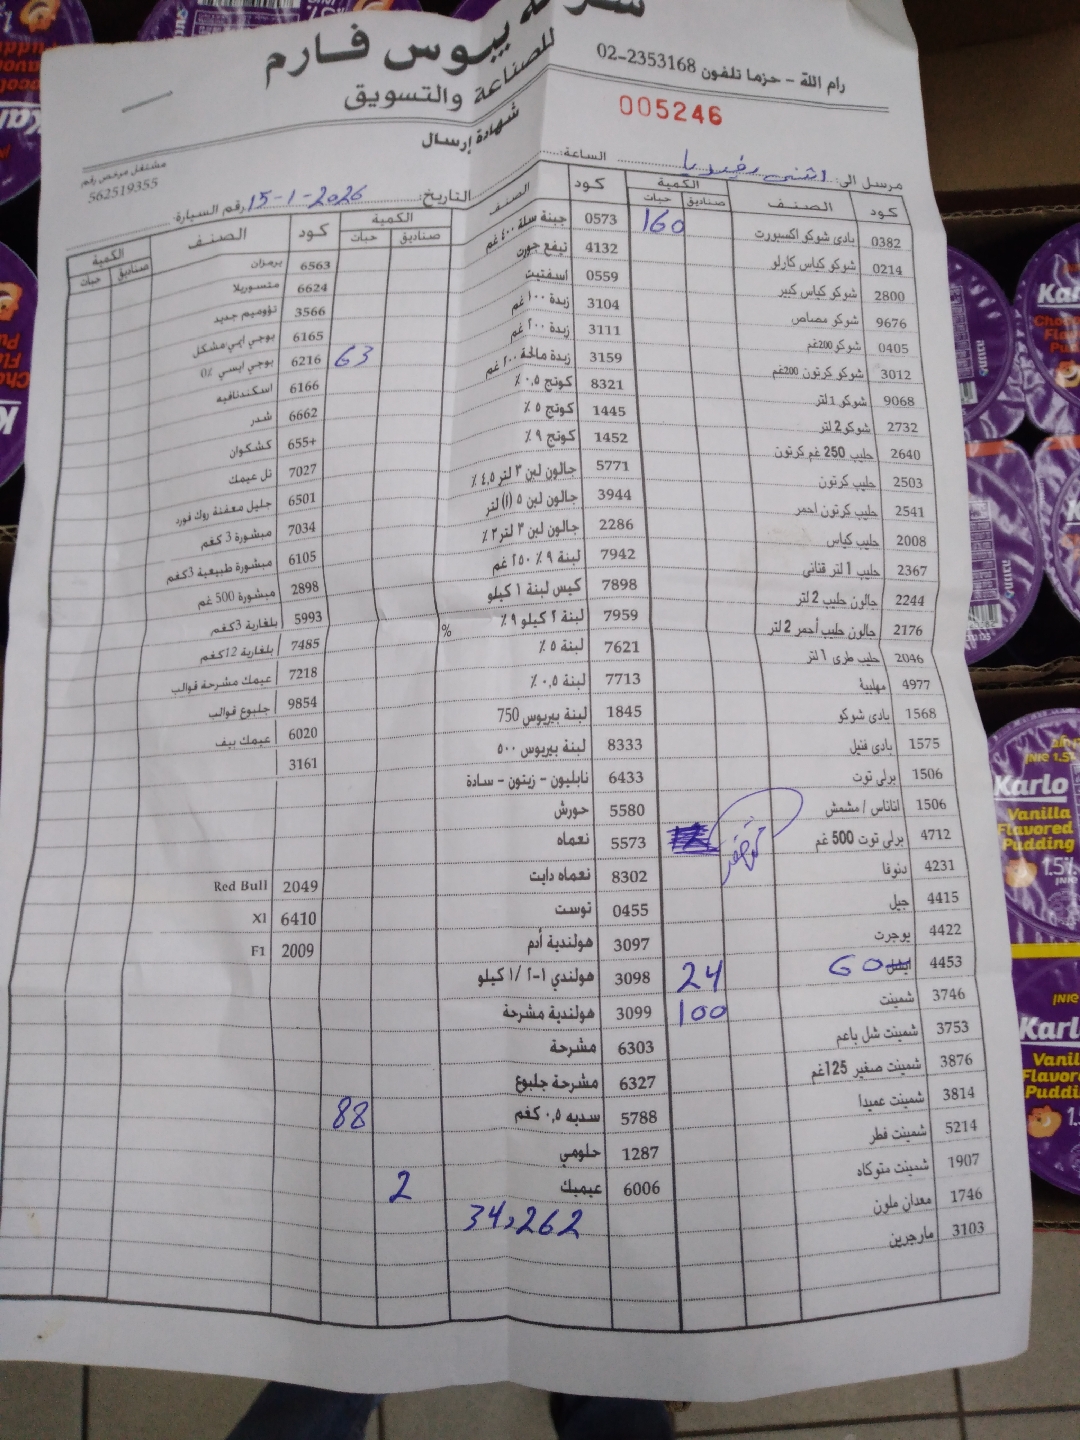 شركة يبوس فارم
للصناعة والتسويق
رام الله - حزما تلفون 02-2353168
005246
شهادة إرسال
مشتغل مرخص رقم
562519355
مرسل الى: الساعة:
التاريخ: 15-1-2026 رقم السيارة:
كود الصنف الكمية صناديق حبات
0382 بادي شوكو اكسبورت 160
0214 شوكو كياس كارلو
2800 شوكو كياس كبير
9676 شوكو مصاص
0405 شوكو 200غم
3012 شوكو كرتون 200غم
9068 شوكو 1 لتر
2732 شوكو 2 لتر
2640 حليب 250 غم كرتون
2503 حليب كرتون
2541 حليب كرتون احمر
2008 حليب كياس
2367 حليب 1 لتر قناني
2244 جالون حليب 2 لتر
2176 جالون حليب أحمر 2 لتر
2046 حليب طري 1 لتر
4977 مهلبية
1568 بادي شوكو
1575 بادي فنيل
1506 برلي توت
1506 اناناس / مشمش
4712 برلي توت 500 غم
4231 دنوفا
4415 جيل
4422 يوجرت
4453 60 24
3746 شمينت 100
3753 شمينت شل باعم
3876 شمينت صغير 125غم
3814 شمينت عميدا
5214 شمينت فطر
1907 شمينت متوكاه
1746 معدان ملون
3103 مارجرين
كود الصنف الكمية صناديق حبات
0573 جبنة سلة ٤٠٠ غم
4132 تيفع جورت
0559 اسفتيت
3104 زبدة ١٠٠ غم
3111 زبدة ٢٠٠ غم
3159 زبدة مالحة ٢٠٠ غم 63
8321 كوتج ٠,٥ ٪
1445 كوتج ٥ ٪
1452 كوتج ٩ ٪
5771 جالون لبن ٣ لتر ٤,٥ ٪
3944 جالون لبن ٥ (١) لتر
2286 جالون لبن ٣ لتر ٣ ٪
7942 لبنة ٩ ٪ ٢٥٠ غم
7898 كيس لبنة ١ كيلو
7959 لبنة ٢ كيلو ٩ ٪
7621 لبنة ٥ ٪ %
7713 لبنة ٠,٥ ٪
1845 لبنة بيريوس 750
8333 لبنة بيريوس ٥٠٠
6433 نابليون - زيتون - سادة
5580 حورش
5573 نعماه
8302 نعماه دايت
0455 توست
3097 هولندية أدم
3098 هولندي ١-٢ /١ كيلو
3099 هولندية مشرحة
6303 مشرحة
6327 مشرحة جلبوع
5788 سدبه ٠,٥ كغم 88
1287 حلومي
6006 عيمبك 2
34,262
كود الصنف الكمية صناديق حبات
6563 برمزان
6624 متسوريلا
3566 نؤوميم جديد
6165 يوجي ايبي مشكل
6216 يوجي ايسي 0٪
6166 اسكندنافيه
6662 شدر
655+ كشكوان
7027 تل عيمك
6501 جليل معفنة روك فورد
7034 مبشورة 3 كغم
6105 مبشورة طبيعية 3كغم
2898 مبشورة 500 غم
5993 بلغارية 3كغم
7485 بلغارية 12كغم
7218 عيمك مشرحة قوالب
9854 جلبوع قوالب
6020 عيمك بيف
3161
2049 Red Bull
6410 Xl
2009 F1
Karlo
Vanilla
Flavored
Pudding
1.5%
Karlo
Vanilla
Flavored
Pudding